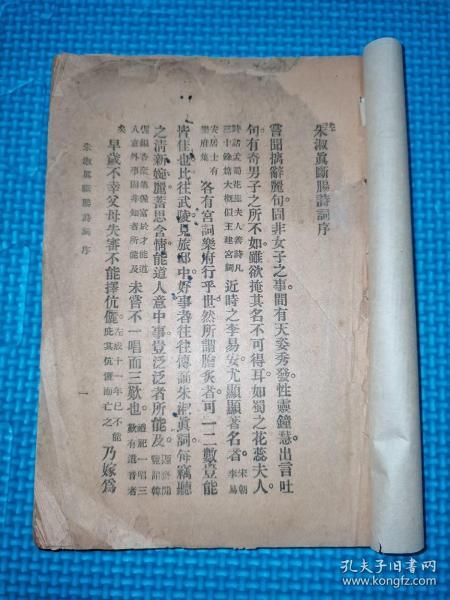 朱淑眞斷腸詩詞序
嘗聞摛辭麗句。固非女子之事。間有天姿秀發。性靈鐘慧。出言吐
句。有奇男子之所不如。雖欲掩其名。不可得耳。如蜀之花蕊夫人。
近時之李易安。尤顯顯著名者。宋朝李易安居士有樂府集
各有宮詞樂府行乎世。然所謂膾炙者。可一二數。豈能
皆佳也。比往武陵。見旅邸中好事者。往往傳誦朱淑眞詞。每竊聽
之。清新婉麗。蓄思含情。能道人意中事。豈泛泛者所能及。
未嘗不一唱而三歎也。
早歲不幸。父母失審。不能擇伉儷。
乃嫁爲
朱淑眞斷腸詩詞 序
一
孔夫子旧书网
www.kongfz.com